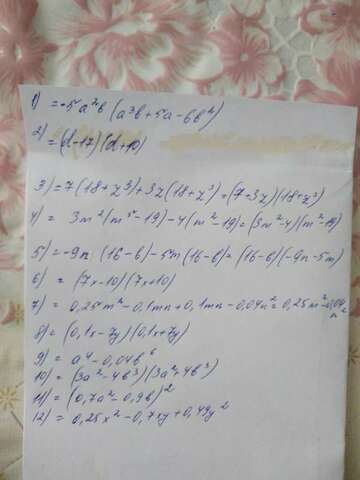 1) = -5a²b (a³b+5a-6b²)
2) = (d-17)(d+10)
3) = 7(18+z³)+3z(18+z³)=(7+3z)(18+z³)
4) = 3m²(m²-19)-4(m²-19)=(3m²-4)(m²-19)
5) = -9n (16-b)-5m(16-b)=(16-b)(-9n-5m)
6) = (7x-10)(7x+10)
7) = 0,25m²-0,1mn+0,1mn-0,04n²=0,25m²-0,04n²
8) = (0,1x-7y)(0,1x+7y)
9) = a⁴-0,04b⁶
10) = (3a²-4b³)(3a²+4b³)
11) = (0,7a²-0,9b)²
12) = 0,25x²-0,7xy+0,49y²